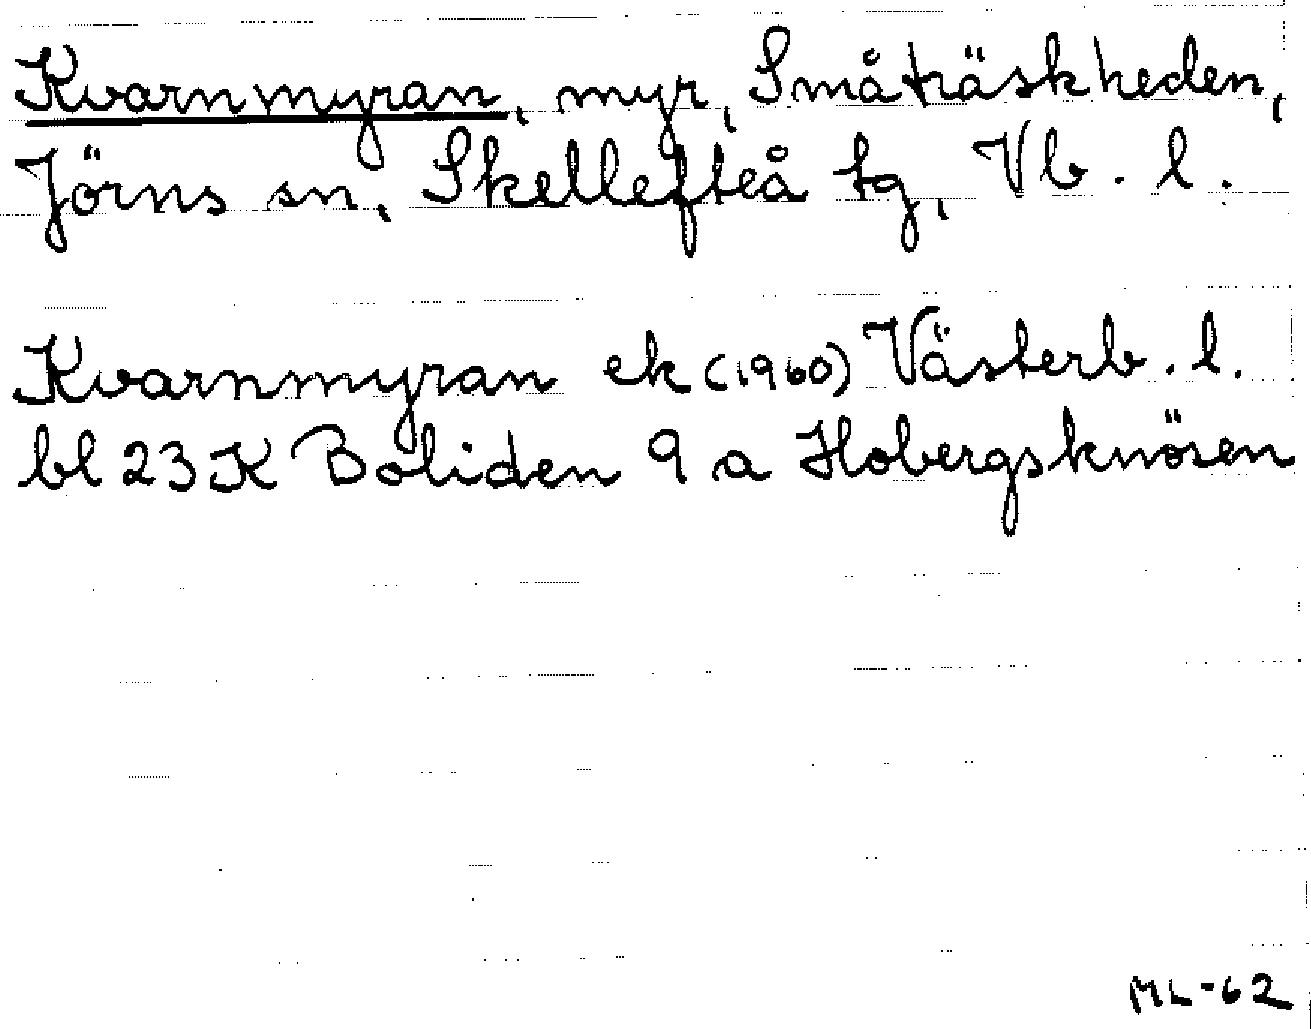 Kvarnmyran, myr, Småträskheden,
Jörns sn, Skellefteå tg, Vb. l.
Kvarnmyran ek (1960) Västerb. l.
bl 23 K Boliden 9 a Hobergsknösen
ML-62